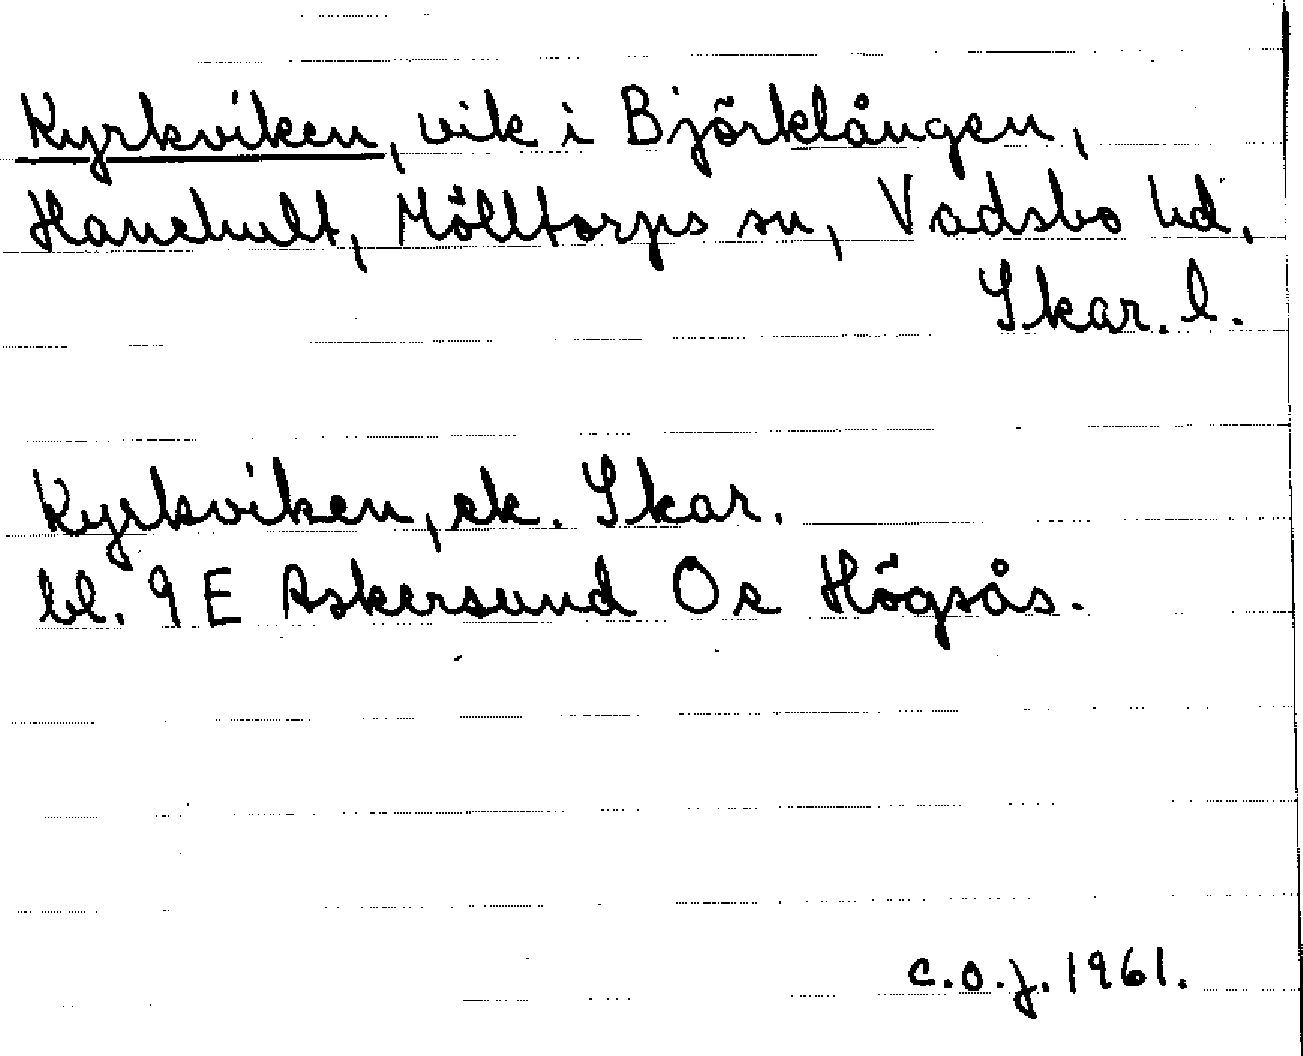 Kyrkviken, vik i Björklången,
Hanehult, Mölltorps sn, Vadsbo hd,
Skar. l.
Kyrkviken, ek. Skar.
bl. 9 E Askersund Oa Högsås.
C.O.J. 1961.